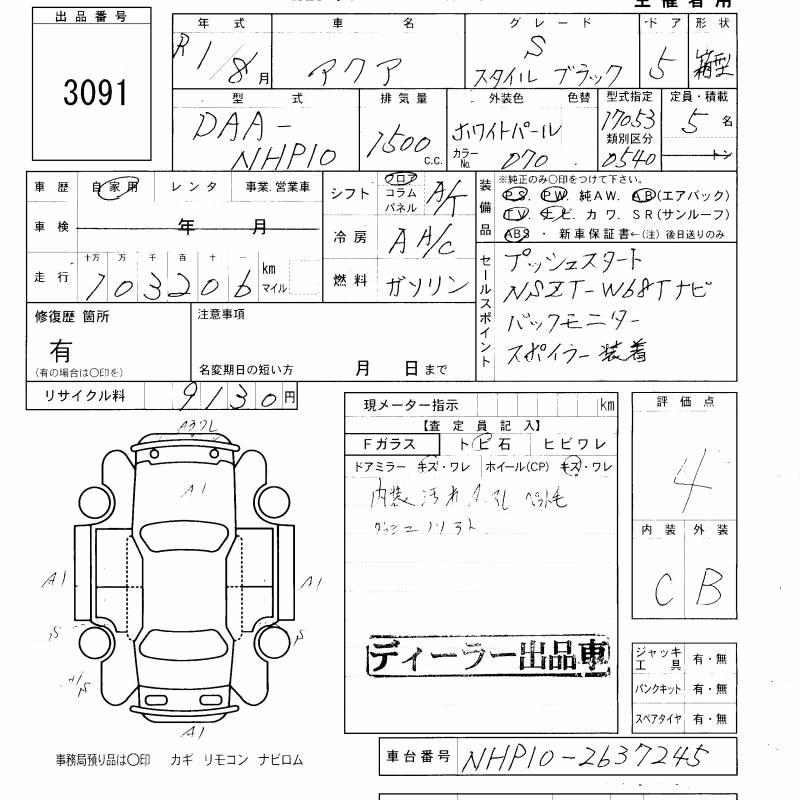 主催者用
出品番号
3091
年式 車名 グレード ドア 形状
R1/8月 アクア S スタイルブラック 5 箱型
型式 排気量 外装色 色替 型式指定 定員・積載
DAA-NHP10 1500 c.c. ホワイトパール 17053 5名
カラーNo. 070 類別区分 0540 トン
車歴 自家用 レンタ 事業.営業車
車検 年 月
走行 十万 万 千 百 十 一
103206 km マイル
シフト フロア コラム パネル A/T
冷房 A A/C
燃料 ガソリン
装備品
※純正のみ〇印をつけて下さい。
PS. PW. 純AW. AB(エアバック)
TV. ナビ カワ. SR(サンルーフ)
ABS ・ 新車保証書←(注) 後日送りのみ
セールスポイント
プッシュスタート
NSZT-W68Tナビ
バックモニター
スポイラー装着
修復歴 箇所
有
(有の場合は〇印を)
注意事項
名変期日の短い方 月 日まで
リサイクル料 9130円
A3フL
A1
A1
A1
S
S
S
A1
事務局預り品は〇印 カギ リモコン ナビロム
現メーター指示 km
【査定員記入】
Fガラス トビ石 ヒビワレ
ドアミラー キズ・ワレ ホイール(CP) キズ・ワレ
内装汚れ ペット毛
ディーラー出品車
評価点
4
内装 外装
C B
ジャッキ工具 有・無
パンクキット 有・無
スペアタイヤ 有・無
車台番号 NHP10-2637245